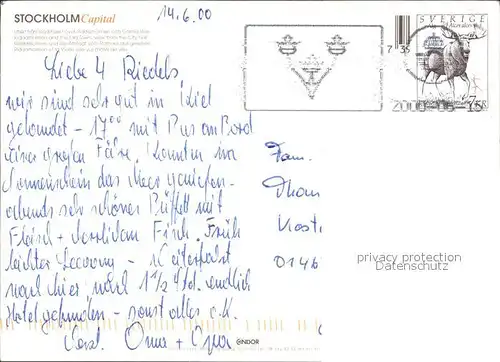 STOCKHOLM Capital
14.6.00
SVERIGE
7 35
2000-06-15
Liebe 4 Riedels
wir sind sehr gut in Kiel
gelandet - 17⁰⁰ mit Bus an Bord
einer großen Fähre. Konnten im
Sonnenschein das Meer genießen -
abends sehr schönes Büffett mit
Fleisch + herrlichem Fisch. Früh
leichter Seegang - Weiterfahrt
nach hier nach 1 1/2 Std. endlich
Hotel gefunden - sonst alles o.k.
Herzl. Oma + Opa
Fam.
Thom
Kost
0146
privacy protection
Datenschutz
@NDOR